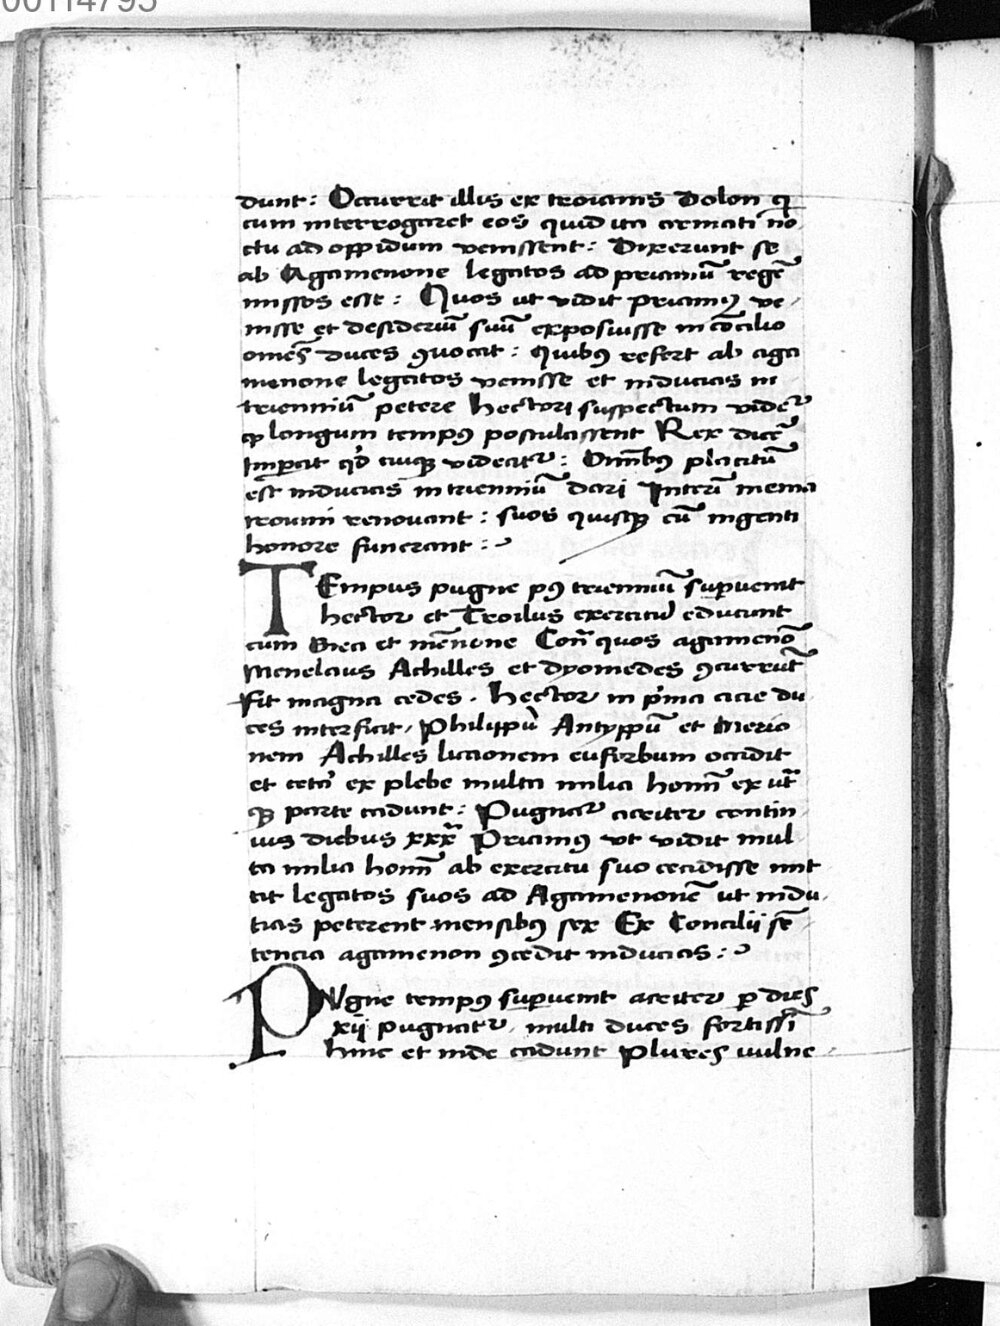 00114795
dunt: Occurrit illis ex troianis Dolon q
cum interrogaret eos quid ita armati no
ctu ad oppidum venissent: Dixerunt se
ab Agamenone legatos ad priamū regē
missos esse: Quos ut vidit priamꝰ ve
nisse et desideriū suū exposuisse in cōcilio
omēs duces ꝯvocat: quibꝰ refert ab aga
menone legatos venisse et inducias in
trienniū petere Hectori suspectum videt̉
ꝙ longum tempꝰ postulassent Rex dicē
Imperat qd̓ cuiqꝫ videatur: Omībꝰ placitū
est inducias in trienniū dari Interī menia
troiani renovant: suos quisqꝫ cū ingenti
honore funerant:
TEmpus pugne pꝰ trienniū supvenit
hector et Troilus exercitū educunt
cum Enea et mēnone Con̄ quos agamenō
Menelaus Achilles et dyomedes ꝯcurrūt
Fit magna cedes. hector in p̓ma acie du
ces interficit, Philippū Antyppū et Merio
nem Achilles licaonem euforbum occidit
et cet̓a ex plebe multa milia homī ex ut̄
qꝫ parte cadunt: Pugnat̉ acriter contin
uis diebus xxx Priamꝰ vt vidit mul
ta milia homī ab exercitu suo cecidisse mit
tit legatos suos ad Agamenonē ut indu
cias peterent mensibꝰ sex Ex Concilii sē
tencia agamenon ꝯcedit inducias:
PVgne tempꝰ supvenit acriter ꝑ dies
xij pugnatur, multi duces fortissī
hinc et inde cadunt plures vulne